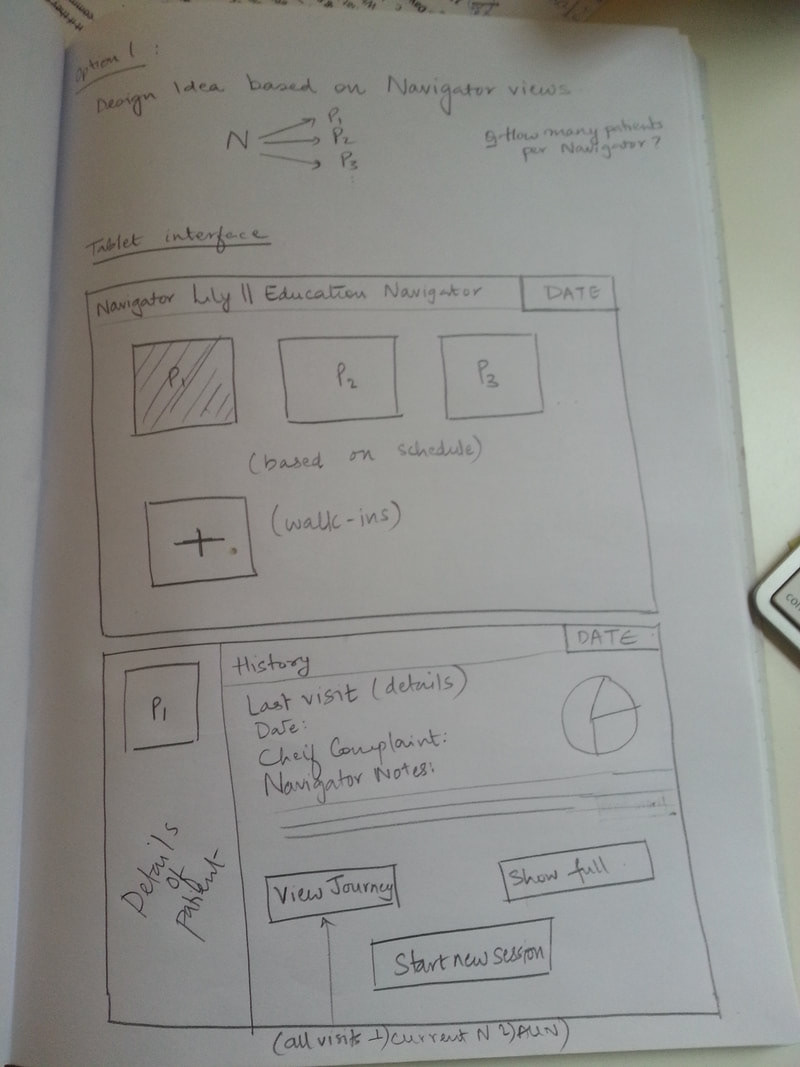 Option 1 :
Design Idea based on Navigator views
N
P1
P2
P3
Q-How many patients
per Navigator?
Tablet interface
Navigator Lily || Education Navigator
DATE
P1
P2
P3
(based on schedule)
+
(walk-ins)
DATE
P1
History
Last visit (details)
Date:
Cheif Complaint:
Navigator Notes:
Details
of
Patient
View Journey
Show full
Start new session
(all visits 1) Current N 2) All N)